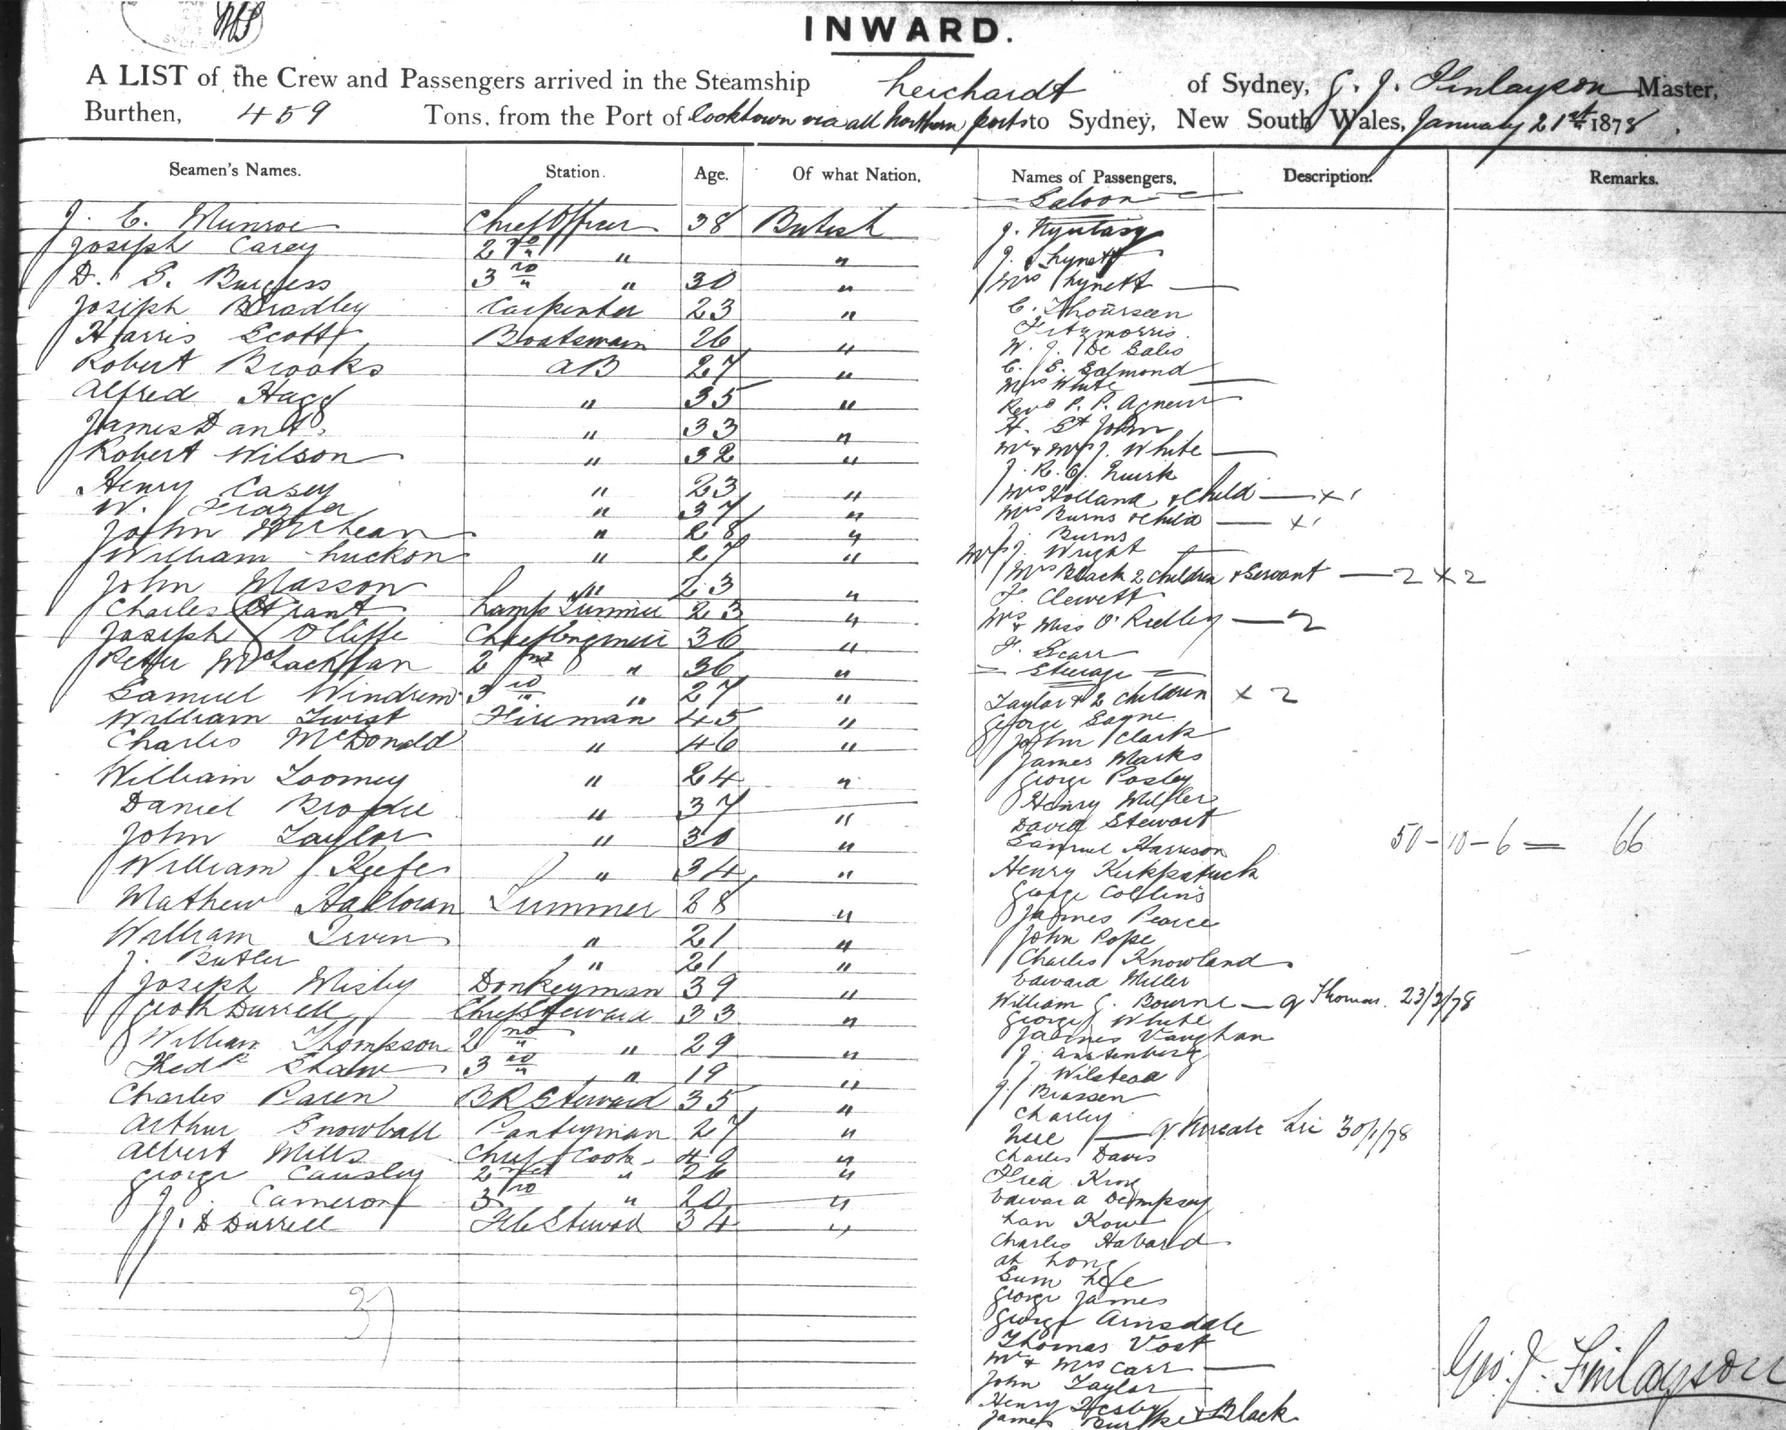 INWARD.
A LIST of the Crew and Passengers arrived in the Steamship Leichardt of Sydney, G. J. Finlayson Master,
Burthen, 459 Tons, from the Port of Cooktown via all Northern ports to Sydney, New South Wales, January 21st 1878.
Seamen's Names. Station. Age. Of what Nation. Names of Passengers. Description. Remarks.
J. C. Munroe Chief Officer 38 British
Joseph Carey 2nd " "
D. S. Burgess 3rd " 30 "
Joseph Bradley Carpenter 23 "
Harris Scott Boatswain 26 "
Robert Brooks AB 27 "
Alfred Hagg " 35 "
James " 33 "
Robert Wilson " 32 "
Henry Casey " 23 "
W. Frazer " 37 "
John " 28 "
William Luckon " 27 "
John Masson " 23 "
Charles Grant Lamp Trimmer 23 "
Joseph Olliffe Chief Engineer 36 "
Peter McLachlan 2nd " 36 "
Samuel Windrum 3rd " 27 "
William Twist Fireman 45 "
Charles McDonald " 46 "
William Toomey " 24 "
Daniel Brodie " 37 "
John Taylor " 30 "
William J Keefe " 34 "
Mathew Halloran Trimmer 28 "
William Irven " 21 "
J. Butler " 21 "
Joseph Misby Donkeyman 39 "
Durrell Chief Steward 33 "
William Thompson 2nd " 29 "
Fredk Shaw 3rd " 19 "
Charles Paren BR Steward 35 "
Arthur Snowball Pantryman 27 "
Albert Mills Chief Cook 49 "
George Causley 2nd " 26 "
J. Cameron 3rd " 20 "
J. D Durrell Steward 34 "
37
Saloon
J.
J. Lynett
Mrs Lynett
C. Thoursen
Fitzmorris
W. J. De Salis
C. S. Salmond
Mrs White
Revd P. P. Agnew
H. St John
Mr & Mrs J. White
J. R. G. Quirk
Mrs Holland & Child — x 1
Mrs Burns & Child — x 1
J. Burns
J. Wright
Mrs Black 2 children & Servant — 2 x 2
F. Clewett
Mrs & Miss O'Ridley — 2
F. Scarr
Steerage
Taylor & 2 children x 2
George Sayne
John Clark
James Marks
George Posley
Henry Miller
David Stewart
Samuel Harrison
50 - 10 - 6 = 66
Henry Kirkpatuck
George Collins
James Pearce
John Pope
Charles Knowland
Edward Miller
William G. Bourne — Thomas. 23/3/78
George White
James Vaughan
J. Anstenberg
J. Wilstead
J. Brassen
Charley
— Lic 30/1/78
Charles Davis
Fred King
Edward Dempsey
Lan Kow
Charles Habard
Ah Long
Sum Lee
George James
George Ainsdale
Thomas Vost
Mr & Mrs Carr
John Taylor
Henry Hesby
James Burke & Black
Geo. J. Finlayson